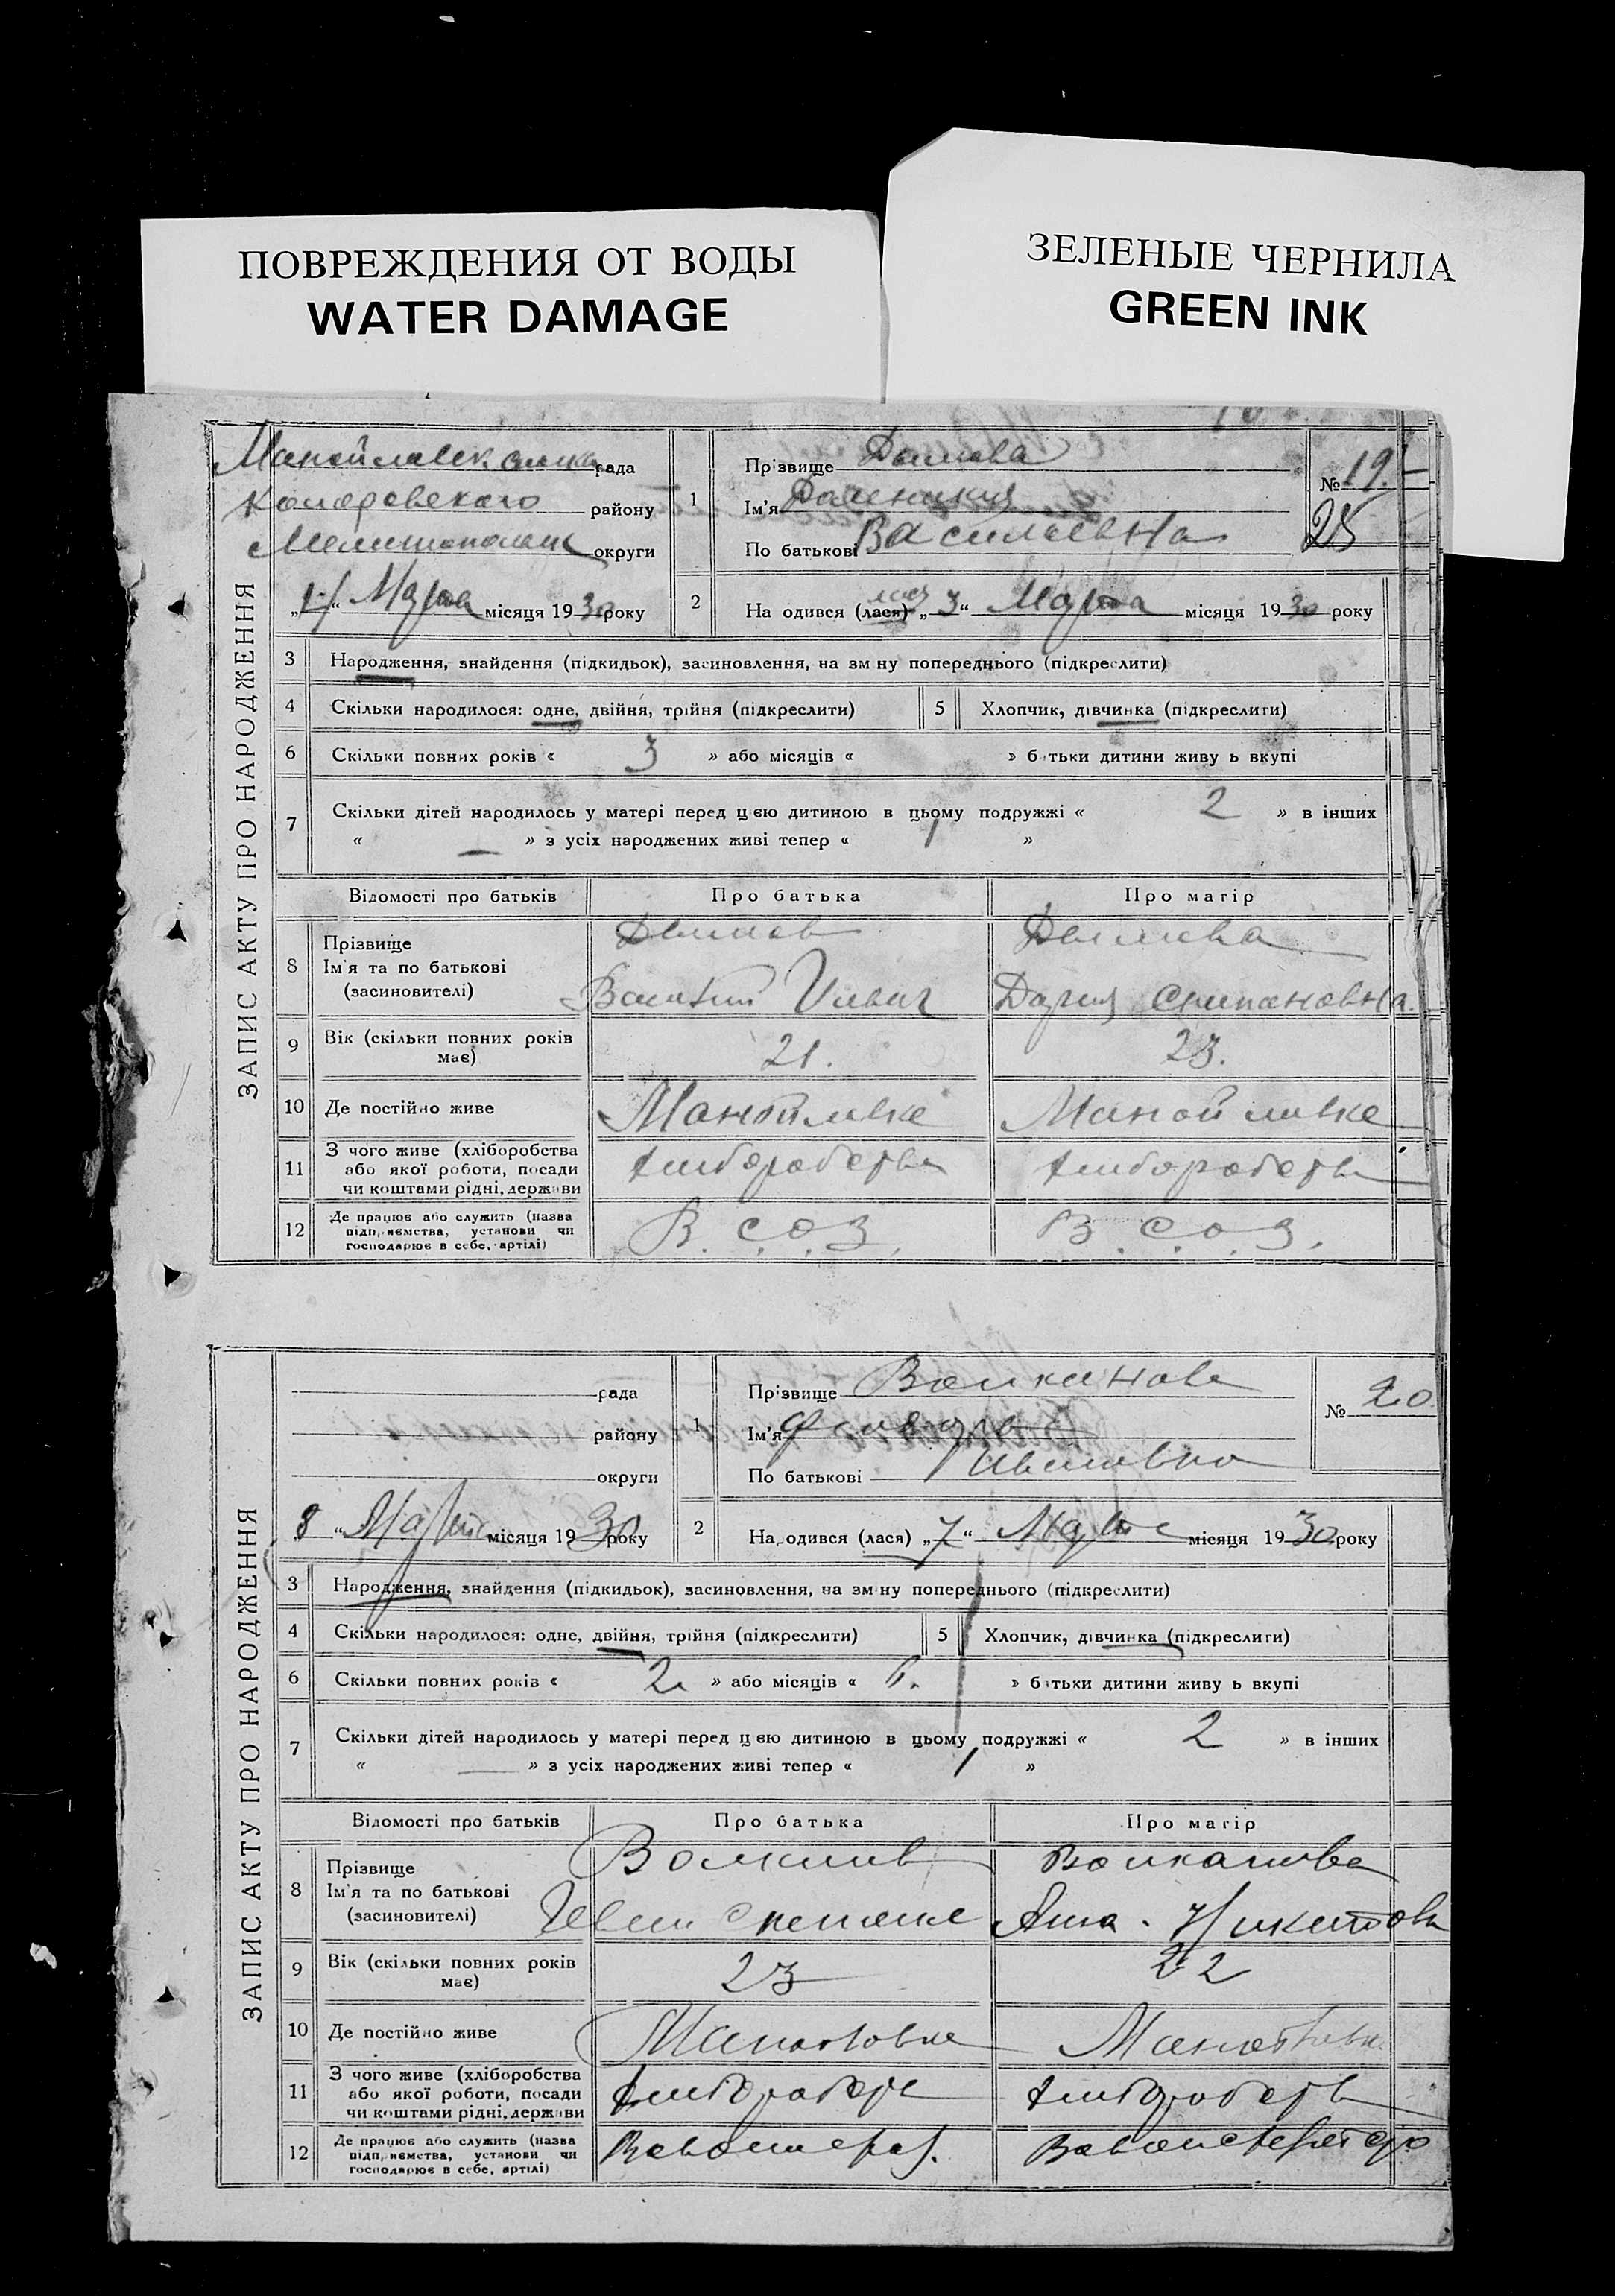 ПОВРЕЖДЕНИЯ ОТ ВОДЫ
WATER DAMAGE
ЗЕЛЕНЫЕ ЧЕРНИЛА
GREEN INK
ЗАПИС АКТУ ПРО НАРОДЖЕННЯ
рада
району
округи
Марта місяця 1930 року
1
Прізвище Дымова
Ім'я
По батькові Васильевна
№ 19
25
2 На одився (лася) „3“ Марта місяця 1930 року
3 Народження, знайдення (підкидьок), засиновлення, на зм ну попереднього (підкреслити)
4 Скільки народилося: одне, двійня, трійня (підкреслити)
5 Хлопчик, дівчинка (підкреслити)
6 Скільки повних років « 3 » або місяців « » батьки дитини живу ь вкупі
7 Скільки дітей народилось у матері перед цією дитиною в цьому подружжі « 2 » в інших
« — » з усіх народжених живі тепер « 1 »
Відомості про батьків Про батька Про матір
8 Прізвище
Ім'я та по батькові
(засиновителі)
Дымов
Василий
Дымова
Дария Степановна
9 Вік (скільки повних років має) 21. 23.
10 Де постійно живе Манойловке Манойловке
11 З чого живе (хліборобства або якої роботи, посади чи коштами рідні, держави Хлиборобства Хлиборобства
12 Де працює або служить (назва підприємства, установи чи господарює в себе, артілі) В. С. О. З. В. С. О. З.
ЗАПИС АКТУ ПРО НАРОДЖЕННЯ
рада
району
округи
8 “ Марта місяця 1930 року
1
Прізвище Волканова
Ім'я
По батькові Ивановна
№ 20
2 На одився (лася) „7“ Марта місяця 1930 року
3 Народження, знайдення (підкидьок), засиновлення, на зм ну попереднього (підкреслити)
4 Скільки народилося: одне, двійня, трійня (підкреслити)
5 Хлопчик, дівчинка (підкреслити)
6 Скільки повних років « 2 » або місяців « » батьки дитини живу ь вкупі
7 Скільки дітей народилось у матері перед цією дитиною в цьому подружжі « 2 » в інших
« — » з усіх народжених живі тепер « 1 »
Відомості про батьків Про батька Про матір
8 Прізвище
Ім'я та по батькові
(засиновителі)
Волканова
Анна
9 Вік (скільки повних років має) 23 22
10 Де постійно живе
11 З чого живе (хліборобства або якої роботи, посади чи коштами рідні, держави Хлиборобств Хлиборобств
12 Де працює або служить (назва підприємства, установи чи господарює в себе, артілі)